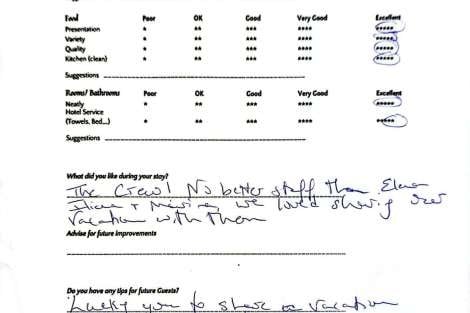 Food Poor OK Good Very Good Excellent
Presentation * ** *** **** *****
Variety * ** *** **** *****
Quality * ** *** **** *****
Kitchen (clean) * ** *** **** *****
Suggestions
Rooms/ Bathrooms Poor OK Good Very Good Excellent
Neatly * ** *** **** *****
Hotel Service
(Towels, Bed...) * ** *** **** *****
Suggestions
What did you like during your stay?
The Crew! No better staff than Elena
+ we loved sharing
Vacation with them
Advise for future improvements
Do you have any tips for future Guests?
Lucky you to share a vacation